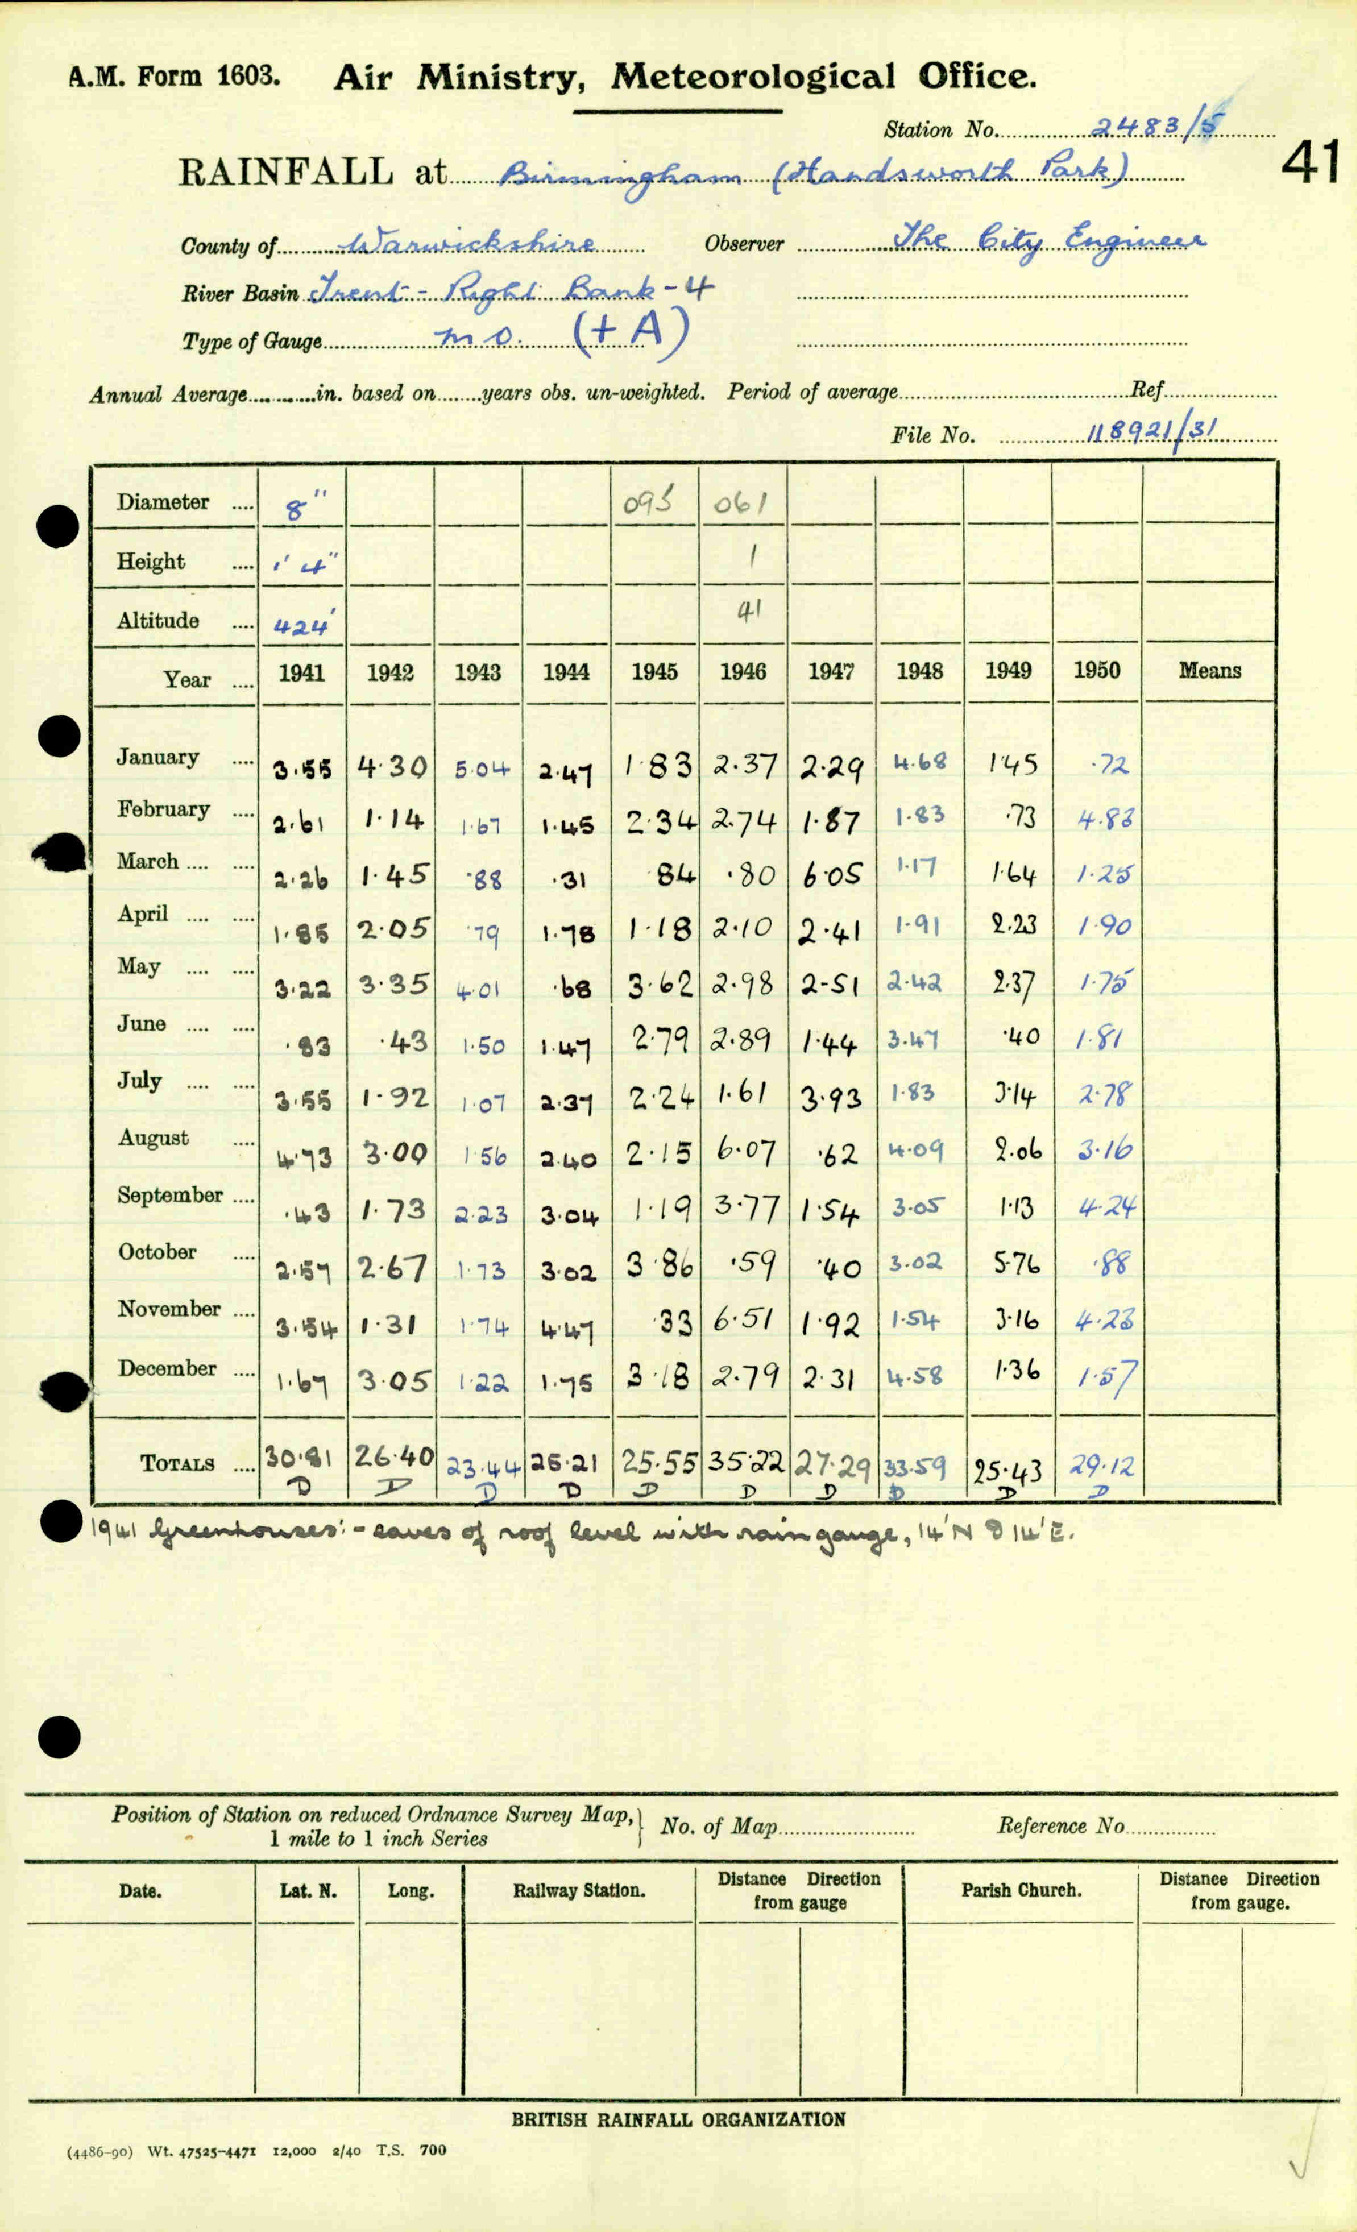 A.M. Form 1603. Air Ministry, Meteorological Office.
Station No. 2483/5
41
RAINFALL at Birmingham (Handsworth Park)
County of Warwickshire Observer The City Engineer
River Basin Trent - Right Bank - 4
Type of Gauge M O. (+ A)
Annual Average in. based on years obs. un-weighted. Period of average Ref.
File No. 118921/31
Diameter .... 8" 095 061
Height .... 1' 4" 1
Altitude .... 424' 41
Year .... 1941 1942 1943 1944 1945 1946 1947 1948 1949 1950 Means
January .... 3.55 4.30 5.04 2.47 1.83 2.37 2.29 4.68 1.45 .72
February .... 2.61 1.14 1.67 1.45 2.34 2.74 1.87 1.83 .73 4.83
March .... .... 2.26 1.45 .88 .31 .84 .80 6.05 1.17 1.64 1.25
April .... .... 1.85 2.05 .79 1.78 1.18 2.10 2.41 1.91 2.23 1.90
May .... .... 3.22 3.35 4.01 .68 3.62 2.98 2-51 2.42 2.37 1.75
June .... .... .83 .43 1.50 1.47 2.79 2.89 1.44 3.47 .40 1.81
July .... .... 3.55 1.92 1.07 2.37 2.24 1.61 3.93 1.83 3.14 2.78
August .... 4.73 3.00 1.56 2.40 2.15 6.07 .62 4.09 2.06 3.16
September .... .43 1.73 2.23 3.04 1.19 3.77 1.54 3.05 1.13 4.24
October .... 2.57 2.67 1.73 3.02 3.86 .59 .40 3.02 5.76 .88
November .... 3.54 1.31 1.74 4.47 .33 6.51 1.92 1.54 3.16 4.23
December .... 1.67 3.05 1.22 1.75 3.18 2.79 2.31 4.58 1.36 1.57
TOTALS .... 30.81 26.40 23.44 25.21 25.55 35.22 27.29 33.59 25.43 29.12
D D D D D D D D D D
1941 Greenhouses:- eaves of roof level with rain gauge, 14' N & 14' E.
Position of Station on reduced Ordnance Survey Map, 1 mile to 1 inch Series No. of Map Reference No.
Date. Lat. N. Long. Railway Station. Distance from gauge Direction Parish Church. Distance from gauge. Direction
BRITISH RAINFALL ORGANIZATION
(4486-90) Wt. 47525-4471 12,000 2/40 T.S. 700